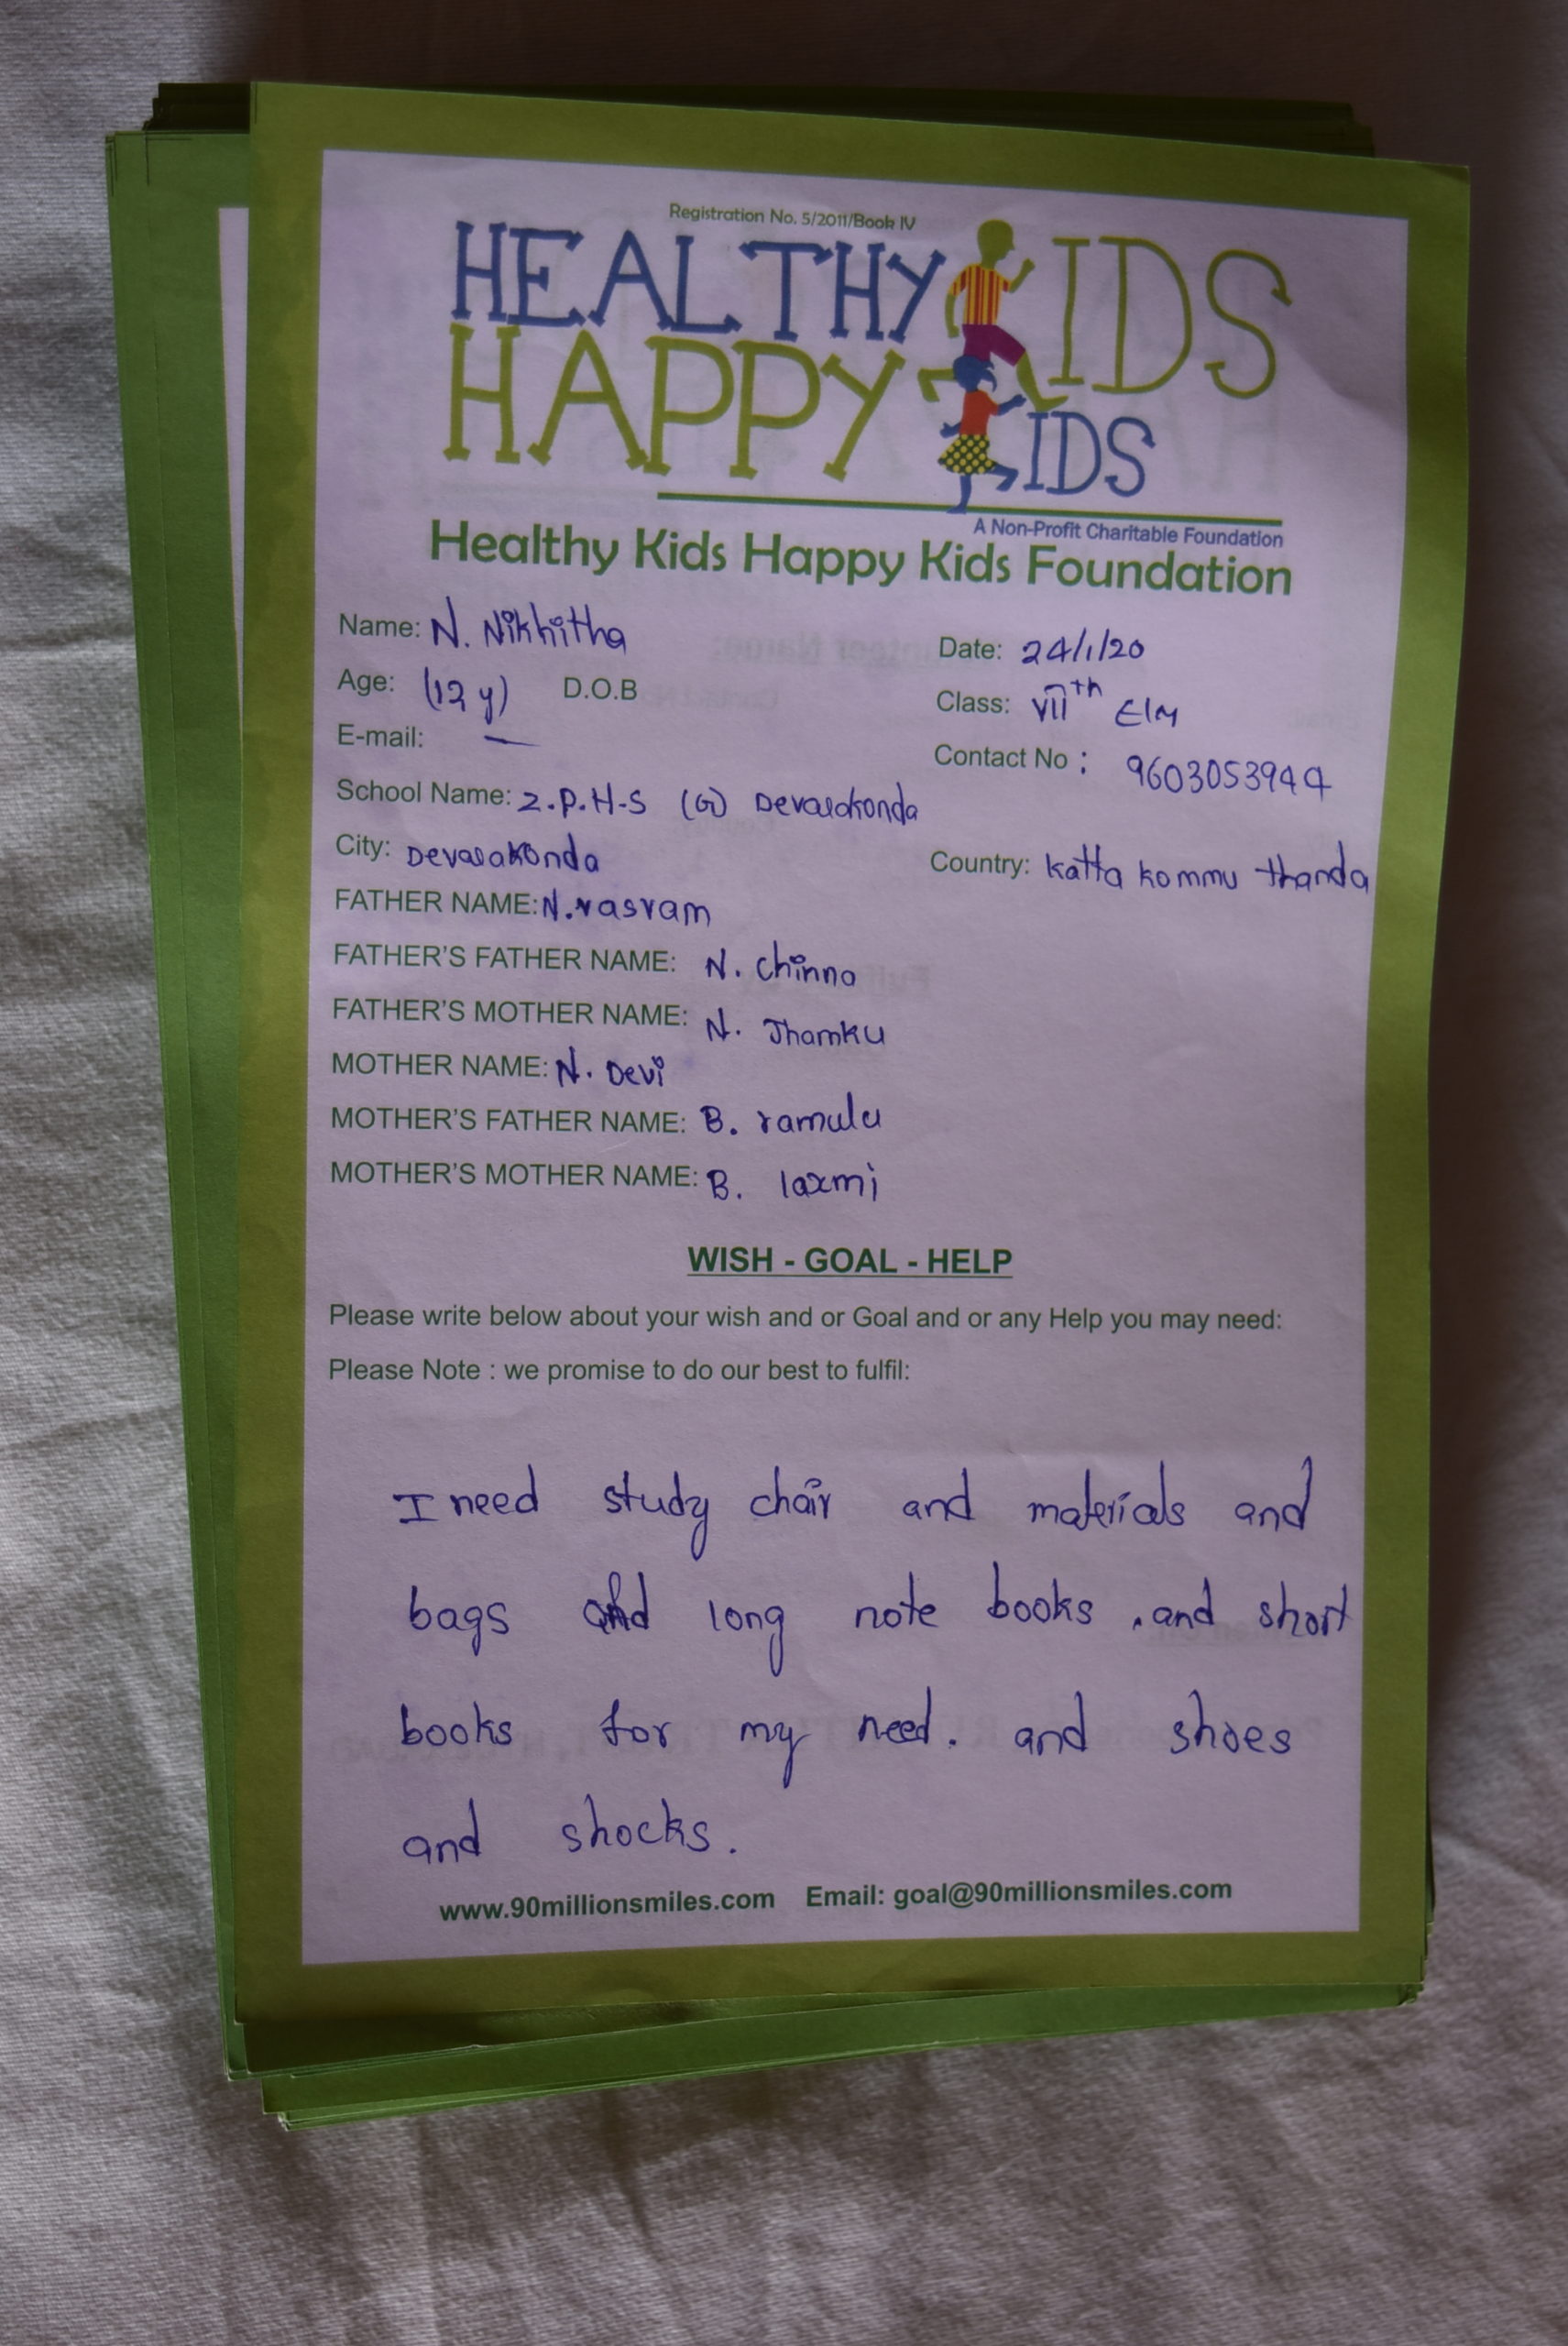 Registration No. 5/2011/Book IV
HEALTHY KIDS
HAPPY KIDS
A Non-Profit Charitable Foundation
Healthy Kids Happy Kids Foundation
Name: N. Nikhitha
Date: 24/1/20
Age: (12 y) D.O.B
Class: VIIth E/M
E-mail: —
Contact No : 9603053944
School Name: Z.P.H-S (G) Devarakonda
City: Devarakonda
Country: Katta kommu thanda
FATHER NAME: N.rasram
FATHER'S FATHER NAME: N. chinna
FATHER'S MOTHER NAME: N. Jhamku
MOTHER NAME: N. Devi
MOTHER'S FATHER NAME: B. ramulu
MOTHER'S MOTHER NAME: B. laxmi
WISH - GOAL - HELP
Please write below about your wish and or Goal and or any Help you may need:
Please Note : we promise to do our best to fulfil:
I need study chair and materials and
bags and long note books . and short
books for my need. and shoes
and shocks.
www.90millionsmiles.com Email: goal@90millionsmiles.com